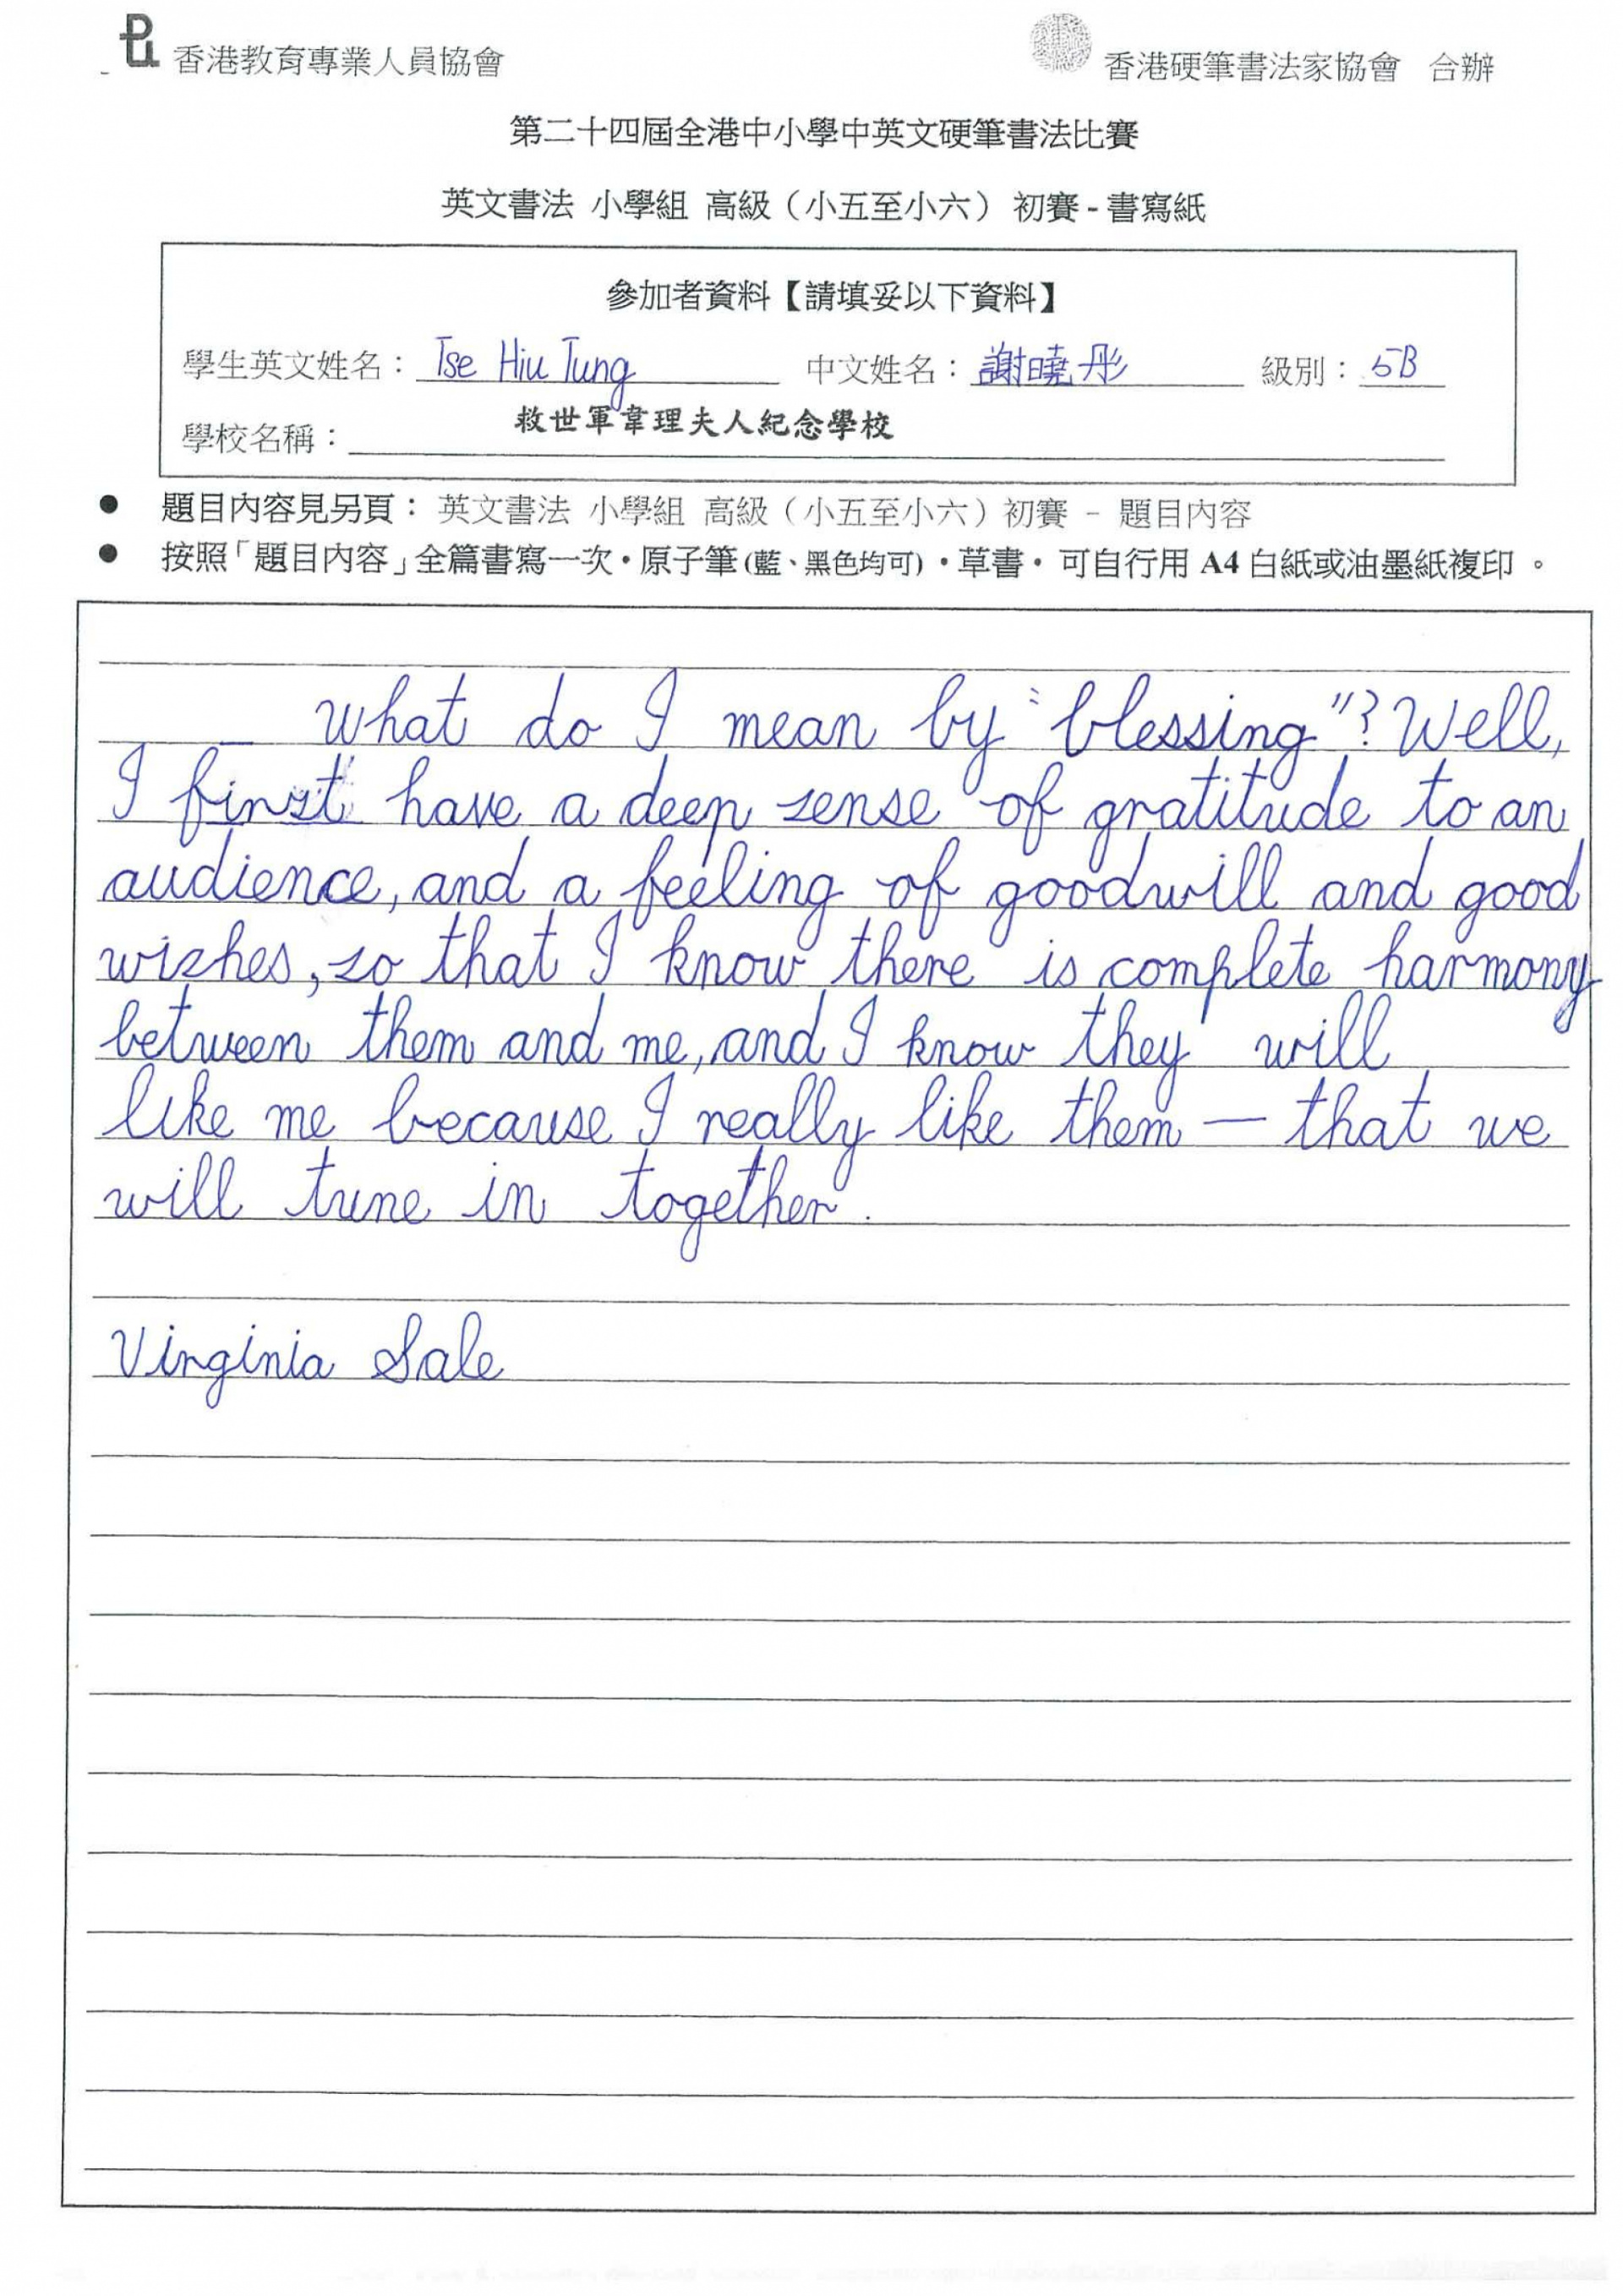 香港教育專業人員協會
香港硬筆書法家協會 合辦
第二十四屆全港中小學中英文硬筆書法比賽
英文書法 小學組 高級（小五至小六） 初賽 - 書寫紙
參加者資料【請填妥以下資料】
學生英文姓名： Tse Hiu Tung 中文姓名： 謝曉彤 級別： 5B
學校名稱： 救世軍韋理夫人紀念學校
● 題目內容見另頁： 英文書法 小學組 高級（小五至小六）初賽 - 題目內容
● 按照「題目內容」全篇書寫一次・原子筆(藍、黑色均可)・草書・可自行用 A4 白紙或油墨紙複印。
What do I mean by "blessing"? Well,
I first have a deep sense of gratitude to an
audience, and a feeling of goodwill and good
wishes, so that I know there is complete harmony
between them and me, and I know they will
like me because I really like them — that we
will tune in together.
Virginia Sale